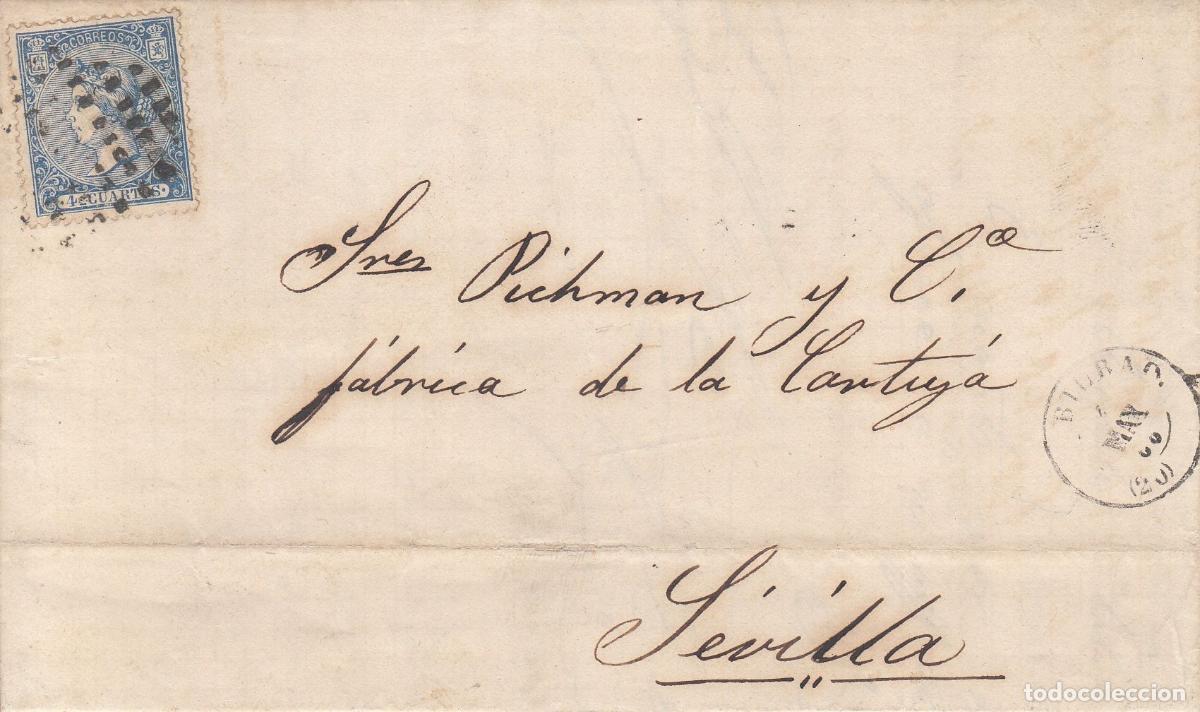 CORREOS
4 CUARTOS
Sres Pichman y Cª
fábrica de la Cartuja
BILBAO.
MAY
(20)
Sévilla
todocoleccion